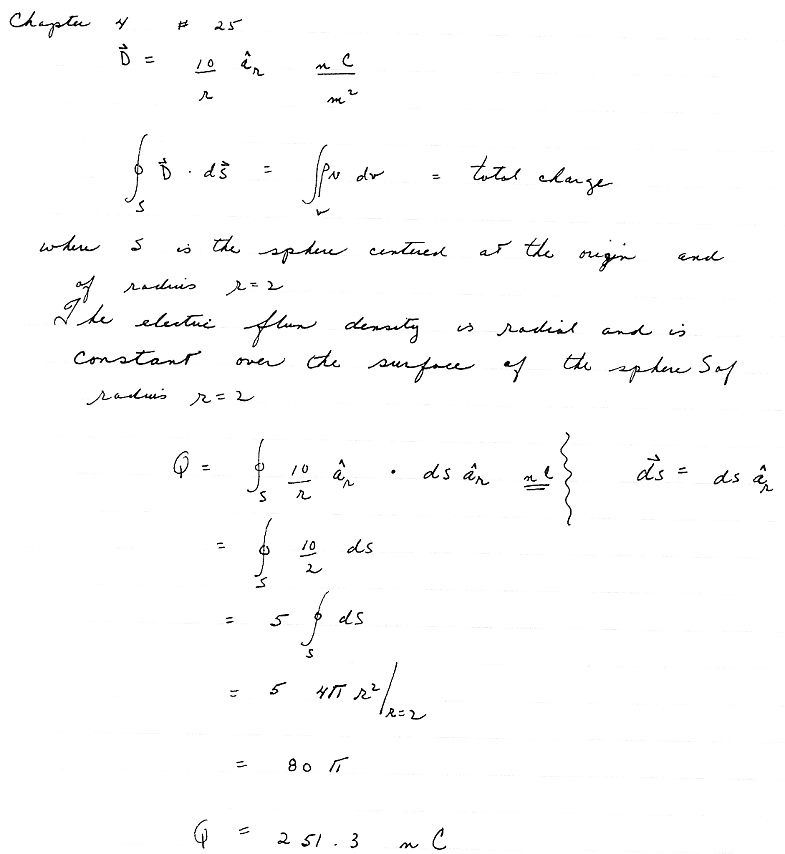 Chapter 4 # 25
D⃗ = 10/r âr nC/m²
∮S D⃗ · ds⃗ = ∫v ρv dv = total charge
where S is the sphere centered at the origin and
of radius r=2
The electric flux density is radial and is
constant over the surface of the sphere S of
radius r=2
Q = ∮S 10/r âr · ds âr nC } ds⃗ = ds âr
= ∮S 10/2 ds
= 5 ∮S ds
= 5 4π r² |r=2
= 80 π
Q = 251.3 nC